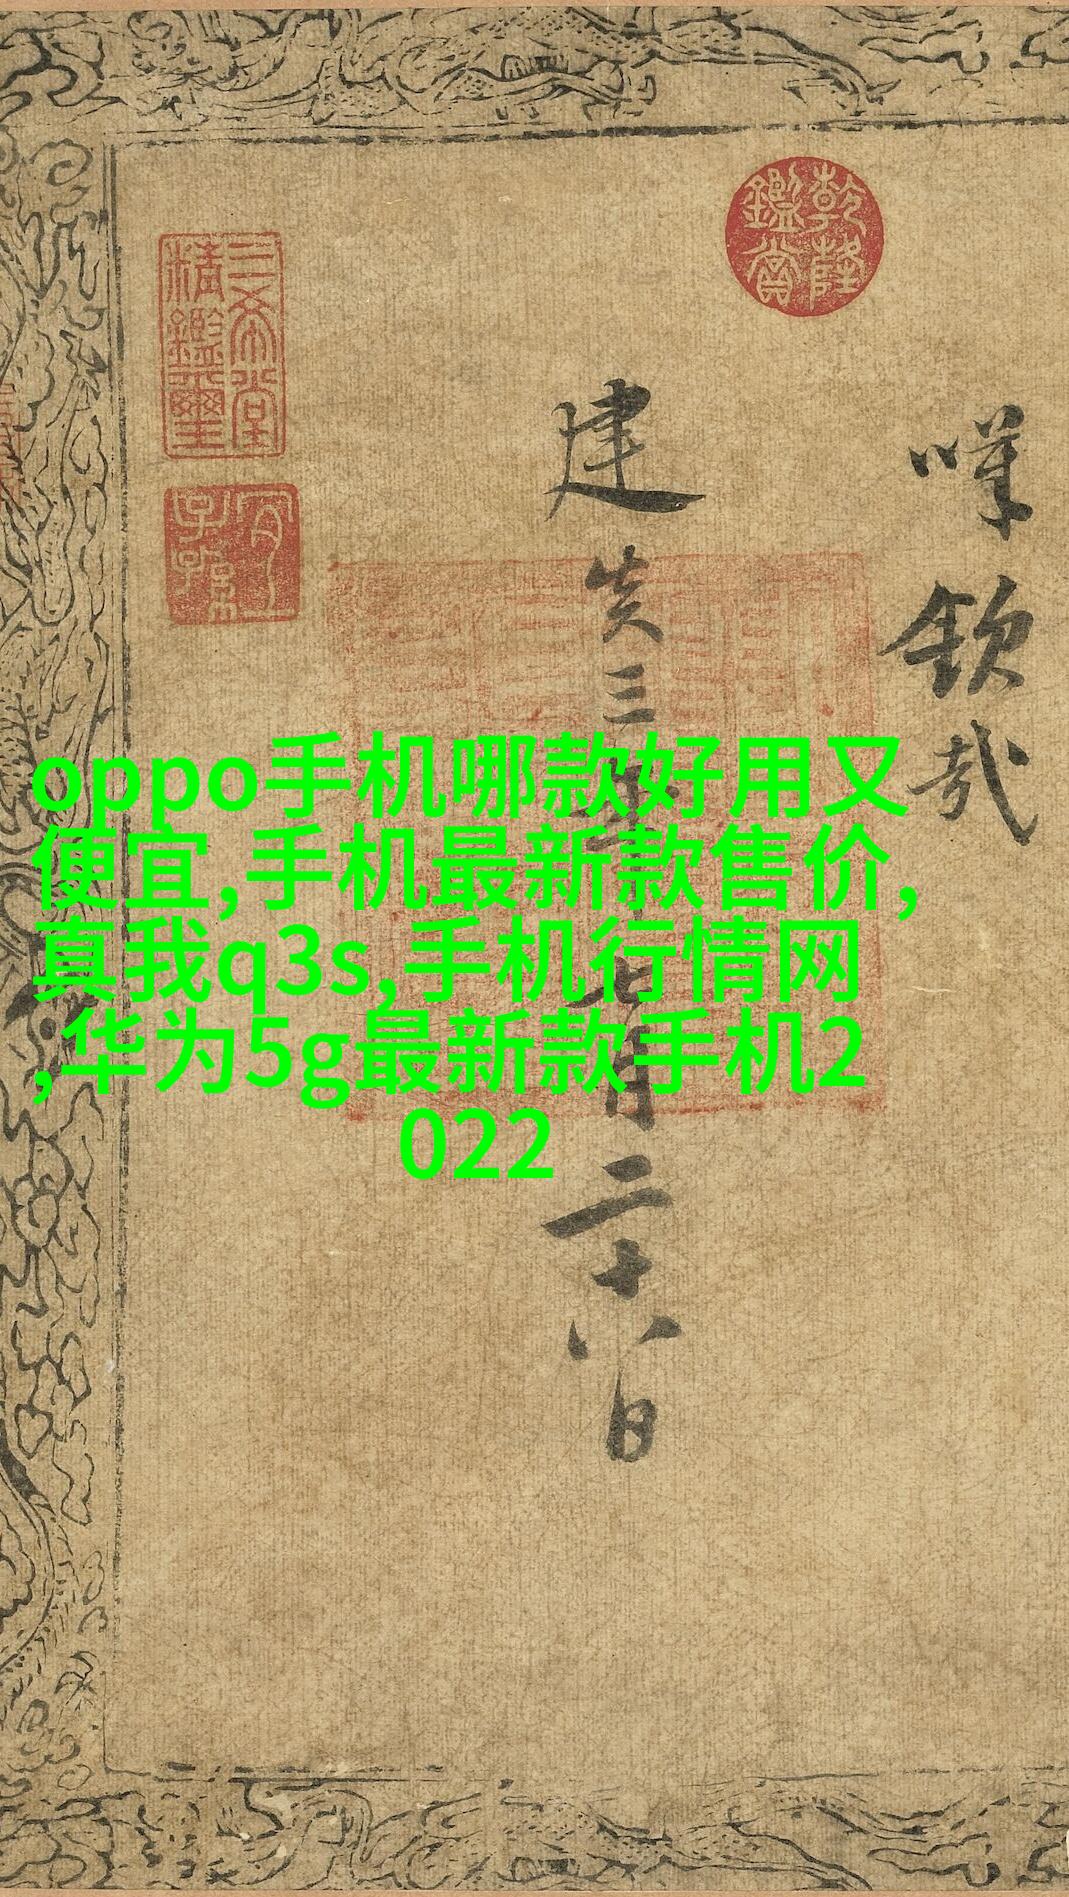 oppo手机哪款好用又
便宜,手机最新款售价,
真我q3s,手机行情网
,华为5g最新款手机2
022
欽哉
建炎三年七月二十八日
乾隆鑑賞
三希堂精鑑璽
宜子孫